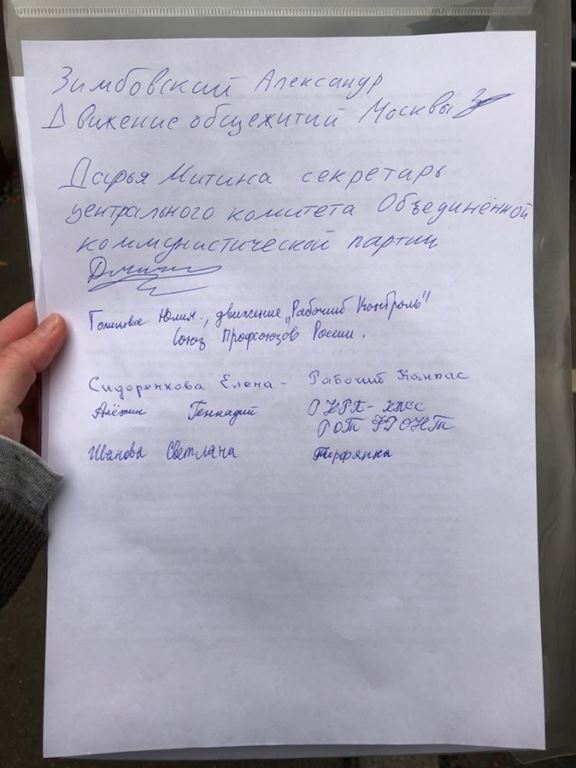 Зимбовский Александр
Движение общежитий Москвы
Дарья Митина секретарь
центрального комитета Объединённой
коммунистической партии
Юлия, движение „Рабочий Контроль"
Союз Профсоюзов России.
Сидоренкова Елена - Рабочий Компас
Алёхин Геннадий РКРП-КПСС
РОТ ФРОНТ
Иванова Светлана Торфянка